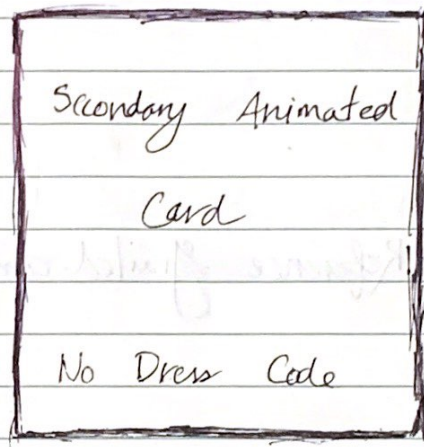 Secondary Animated
Card
No Dress Code